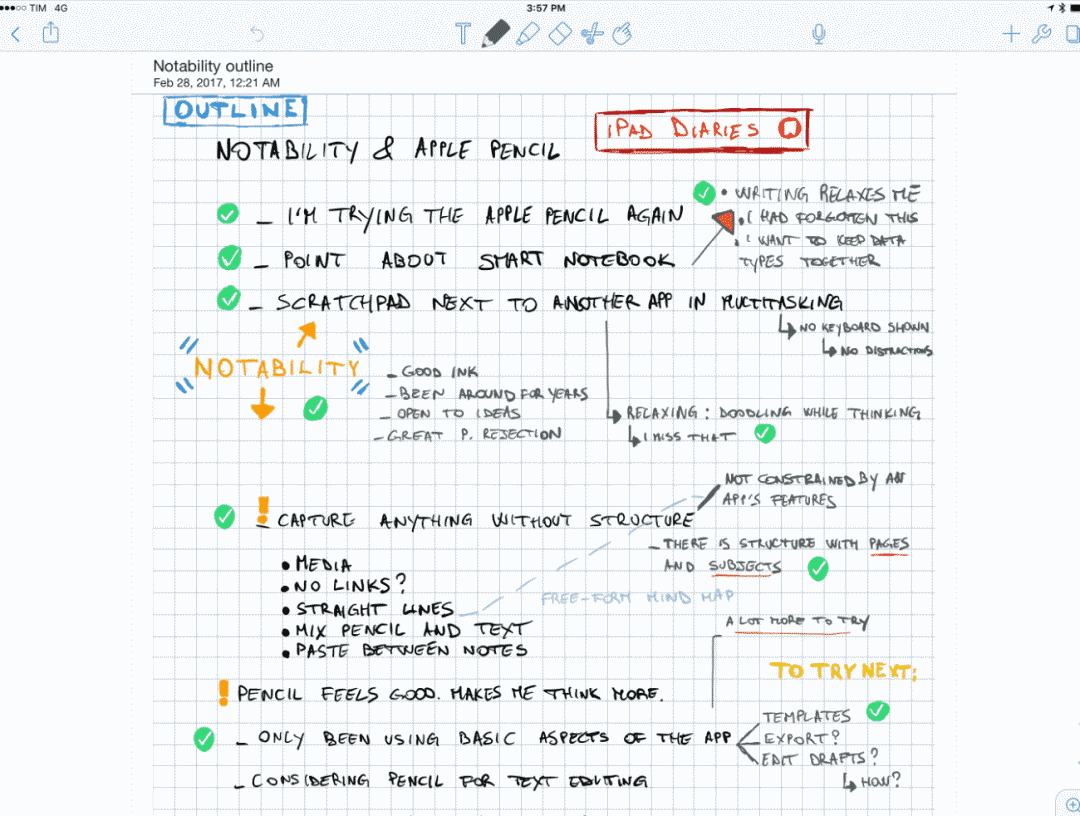 TIM 4G
3:57 PM
Notability outline
Feb 28, 2017, 12:21 AM
OUTLINE
iPAD DIARIES
NOTABILITY & APPLE PENCIL
_ I'M TRYING THE APPLE PENCIL AGAIN
• WRITING RELAXES ME
• I HAD FORGOTTEN THIS
• I WANT TO KEEP DATA
TYPES TOGETHER
_ POINT ABOUT SMART NOTEBOOK
_ SCRATCHPAD NEXT TO ANOTHER APP IN MULTITASKING
NO KEYBOARD SHOWN
NO DISTRACTIONS
NOTABILITY
_ GOOD INK
_ BEEN AROUND FOR YEARS
_ OPEN TO IDEAS
_ GREAT P. REJECTION
RELAXING: DOODLING WHILE THINKING
I MISS THAT
NOT CONSTRAINED BY AN
APP'S FEATURES
! _ CAPTURE ANYTHING WITHOUT STRUCTURE
_ THERE IS STRUCTURE WITH PAGES
AND SUBJECTS
• MEDIA
• NO LINKS?
• STRAIGHT LINES
• MIX PENCIL AND TEXT
• PASTE BETWEEN NOTES
FREE-FORM MIND MAP
A LOT MORE TO TRY
TO TRY NEXT:
! PENCIL FEELS GOOD. MAKES ME THINK MORE.
_ ONLY BEEN USING BASIC ASPECTS OF THE APP
TEMPLATES
EXPORT?
EDIT DRAFTS?
HOW?
_ CONSIDERING PENCIL FOR TEXT EDITING